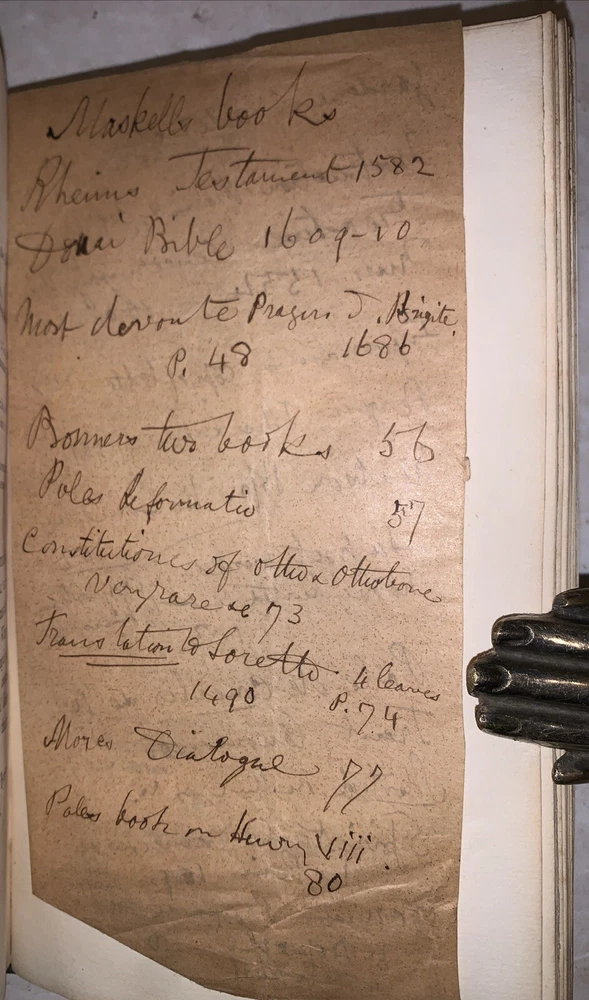 Maskells books
Rheims Testament 1582
Douai Bible 1609-10
Most devoute Prayers S. Brigite
P. 48 1686
Bonners two books 56
Poles Reformatio 57
Constitutiones of Otho & Othobone
Very rare &c 73
Translation to Loretto 4 leaves
1490 P. 74
Mores Dialogue 77
Poles book on Henry Viii.
80